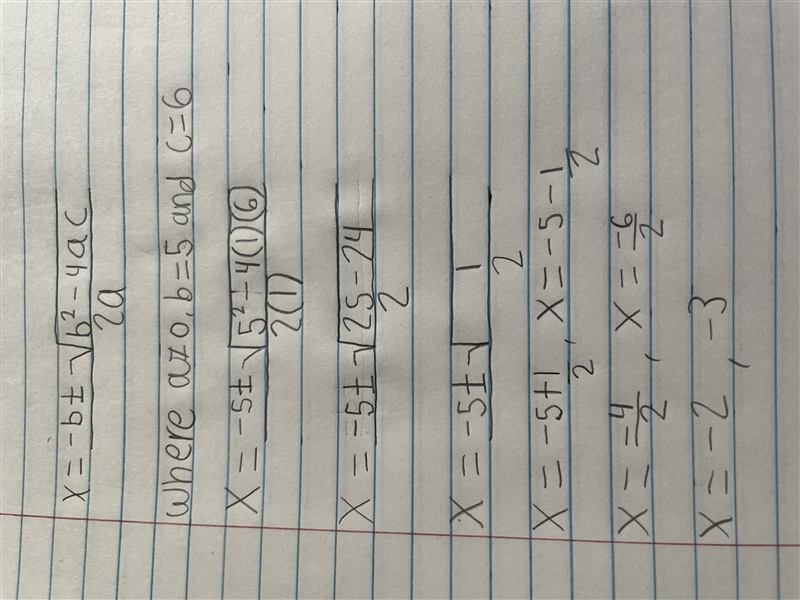 x = -b ± √b² - 4ac / 2a
where a≠0, b=5 and c=6
x = -5 ± √5² - 4(1)(6) / 2(1)
x = -5 ± √25 - 24 / 2
x = -5 ± √1 / 2
x = -5+1 / 2, x = -5 - 1 / 2
x = -4/2, x = -6/2
x = -2, -3